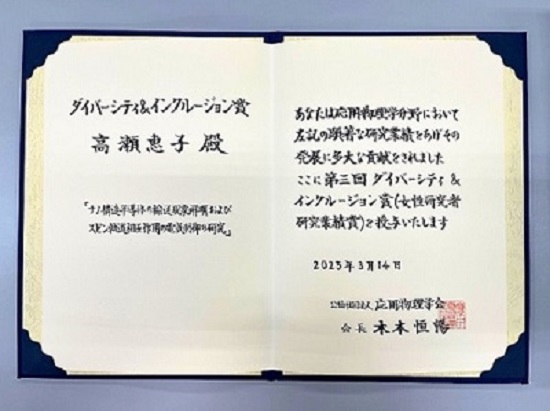 ダイバーシティ&インクルージョン賞
高瀬恵子 殿
『ナノ構造半導体の輸送現象解明および
スピン軌道相互作用の電気的制御の研究』
あなたは応用物理学分野において
左記の顕著な研究業績をあげその
発展に多大な貢献をされました
ここに第三回ダイバーシティ&
インクルージョン賞(女性研究者
研究業績賞)を授与いたします
2025年3月14日
公益社団法人 応用物理学会
会長 木本恒暢